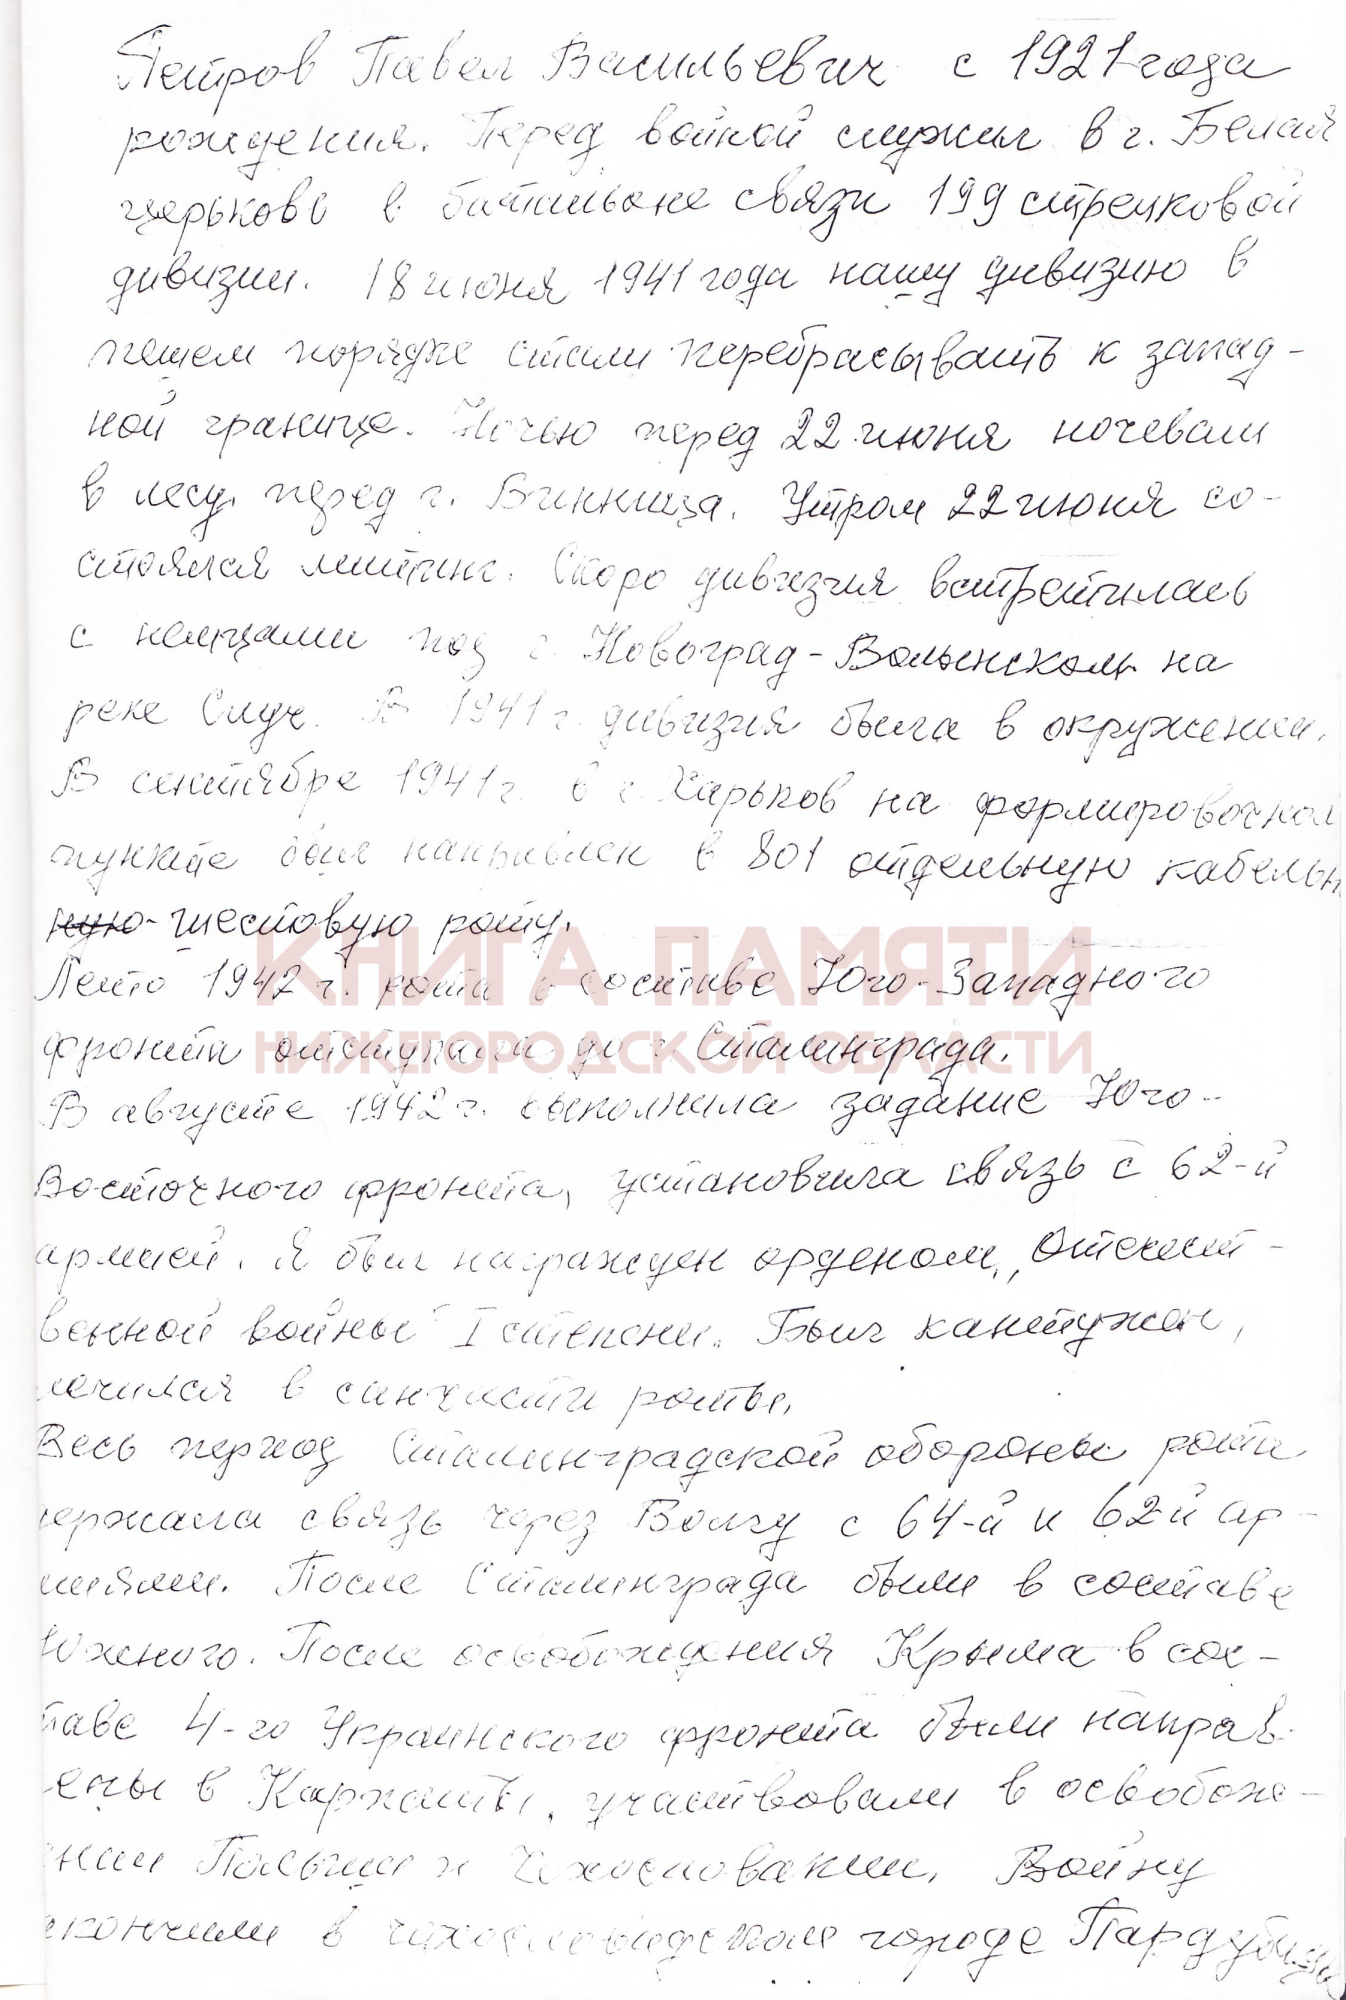 Петров Павел Васильевич с 1921 года
рождения. Перед войной служил в г. Белая
церьковь в батальоне связи 199 стрелковой
дивизии. 18 июня 1941 года нашу дивизию в
пешем порядке стали перебрасывать к запад-
ной границе. Ночью перед 22 июня ночевали
в лесу перед г. Винница. Утром 22 июня со-
стоялся митинг. Скоро дивизия встретилась
с немцами под г. Новоград-Волынском на
реке Случ. В 1941 г. дивизия была в окружении.
В сентябре 1941 г. в г. Харьков на формировочном
пункте был направлен в 801 отдельную кабельн
ную-шестовую роту.
КНИГА ПАМЯТИ
Лето 1942 г. рота в составе Юго-Западного
фронта отступала до г. Сталинграда.
НИЖЕГОРОДСКОЙ ОБЛАСТИ
В августе 1942 г. выполнила задание Юго-
Восточного фронта, установила связь с 62-й
армией. Я был награжден орденом „Отечест-
венной войны" I степени. Был кантужен,
лечился в санчасти роты.
Весь период Сталинградской обороны рота
держала связь через Волгу с 64-й и 62-й ар-
миями. После Сталинграда были в составе
Южного. После освобождения Крыма в сос-
таве 4-го Украинского фронта были направ-
ены в Карпаты, участвовали в освобож-
ении Польши и Чехословакии. Войну
акончили в чехословацском городе Пардубицы